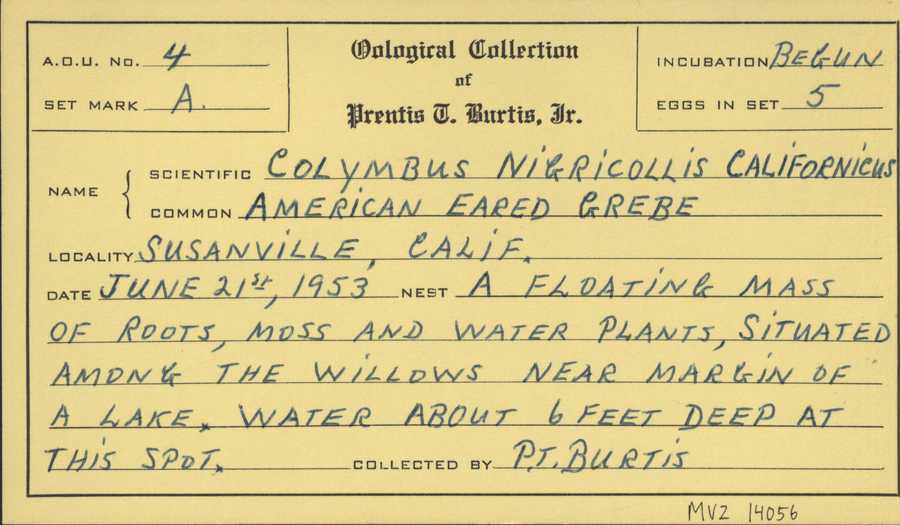 A.O.U. No. 4
SET MARK A.
Oological Collection
of
Prentis T. Burtis, Jr.
INCUBATION BEGUN
EGGS IN SET 5
NAME { SCIENTIFIC COLYMBUS NIGRICOLLIS CALIFORNICUS
COMMON AMERICAN EARED GREBE
LOCALITY SUSANVILLE, CALIF.
DATE JUNE 21st, 1953 NEST A FLOATING MASS
OF ROOTS, MOSS AND WATER PLANTS, SITUATED
AMONG THE WILLOWS NEAR MARGIN OF
A LAKE. WATER ABOUT 6 FEET DEEP AT
THIS SPOT. COLLECTED BY P.T. BURTIS
MVZ 14056